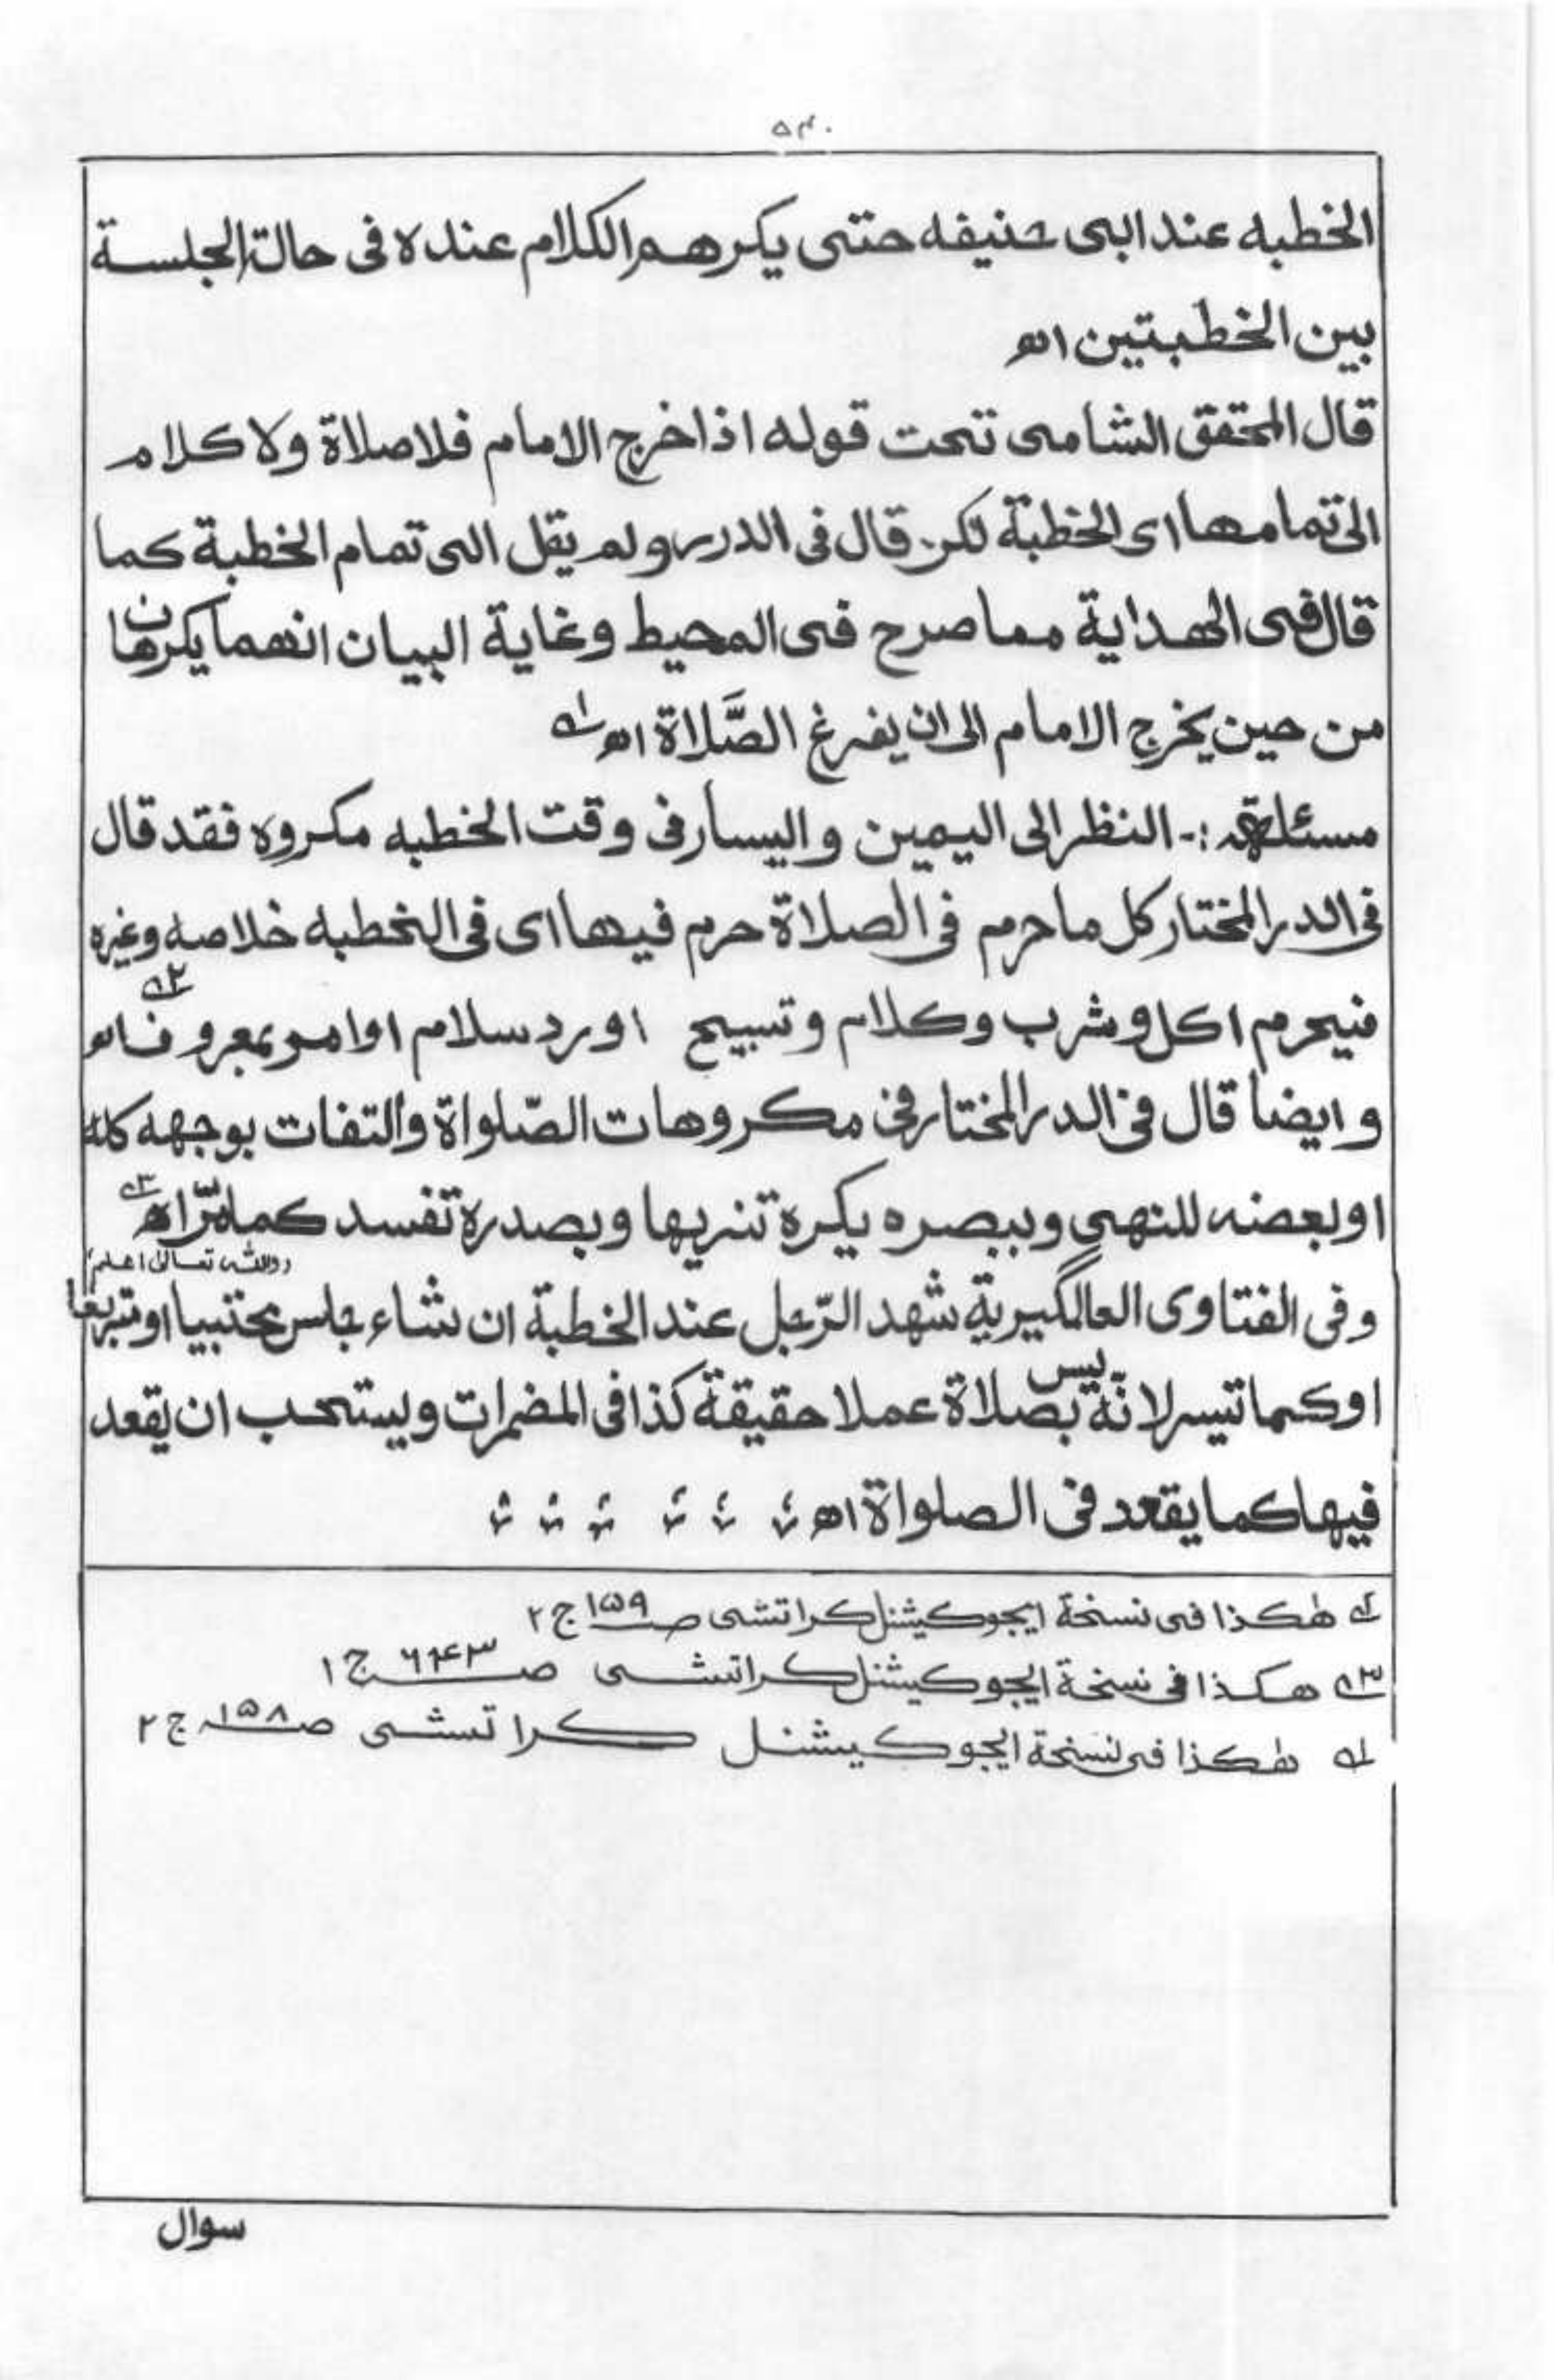 ۵۴۰
الخطبه عند ابی حنیفه حتی یکرهم الکلام عنده فی حالة الجلسة
بین الخطبتین اھ
قال المحقق الشامی تحت قوله اذا خرج الامام فلا صلاة ولا کلام
الی تمامها ای الخطبة لکن قال فی الدرر ولم یقل الی تمام الخطبة کما
قال فی الهدایة مما صرح فی المحیط وغایة البیان انهما یکرهان
من حین یخرج الامام الی ان یفرغ الصَّلاة اھ ؂۱
مسئلة :- النظر الی الیمین والیسار فی وقت الخطبه مکروه فقد قال
فی الدر المختار کل ما حرم فی الصلاة حرم فیها ای فی الخطبه خلاصه وغیره
فیحرم اکل وشرب وکلام وتسبیح اورد سلام اوامر بمعروف اھ ؂۲
وایضا قال فی الدر المختار فی مکروهات الصّلواة والتفات بوجهه کله
اوبعضه للنهی وببصره یکره تنزیها وبصدره تفسد کما مرّ اھ ؂۳
(والله تعالیٰ اعلم)
وفی الفتاوی العالمگیریة شهد الرّجل عند الخطبة ان شاء جلس محتبیا او تربعا
اوکما تیسر لانّه لیس بصلاة عملا حقیقة کذا فی المضمرات ویستحب ان یقعد
فیها کما یقعد فی الصلواة اھ
؂۱ هٰکذا فی نسخة ایجوکیشنل کراتشی ص ۱۵۹ ج ۲
؂۳ هکذا فی نسخة ایجوکیشنل کراتشی ص ۶۴۳ ج ۱
؂۱ هٰکذا فی نسخة ایجوکیشنل کراتشی ص ۱۵۸ ج ۲
سوال